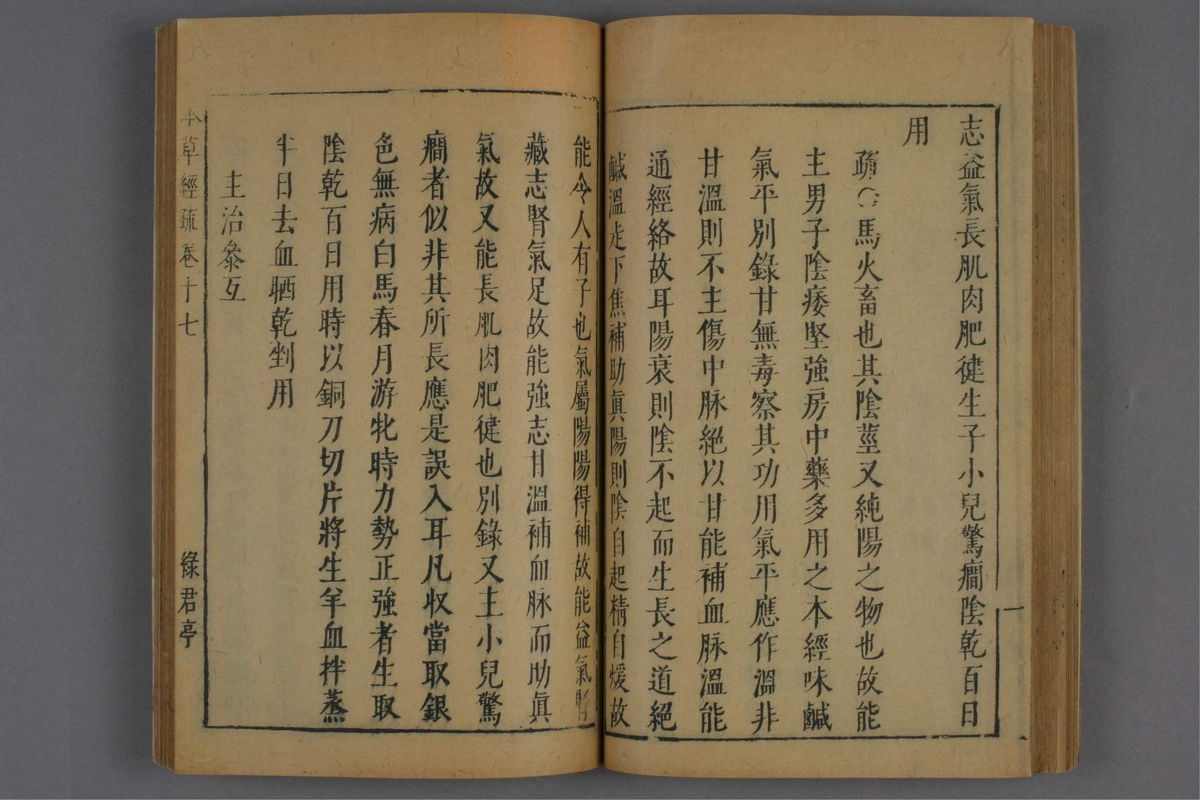 志益氣長肌肉肥徤生子小兒驚癎陰乾百日
用
疏○馬火畜也其陰莖又純陽之物也故能
主男子陰痿堅強房中藥多用之本經味鹹
氣平別錄甘無毒察其功用氣平應作溫非
甘溫則不主傷中脉絕以甘能補血脉溫能
通經絡故耳陽衰則陰不起而生長之道絕
鹹溫走下焦補助眞陽則陰自起精自煖故
能令人有子也氣屬陽陽得補故能益氣腎
藏志腎氣足故能強志甘溫補血脉而助眞
氣故又能長肌肉肥徤也別錄又主小兒驚
癎者似非其所長應是誤入耳凡收當取銀
色無病白馬春月游牝時力勢正強者生取
陰乾百日用時以銅刀切片將生羊血拌蒸
半日去血晒乾剉用
主治叅互
本草經疏 卷十七 綠君亭